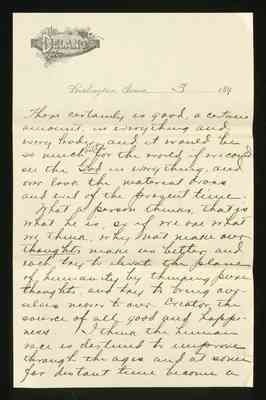 The
DELANO
Burlington, Iowa 3 189
There certainly is good, a certain
amount, in everything and
every body, and it would be
so much better for the world if we could
see the God in every thing, and
over look the material dross
and evil of the present time.
What a person thinks, that is
what he is, so if we are what
we think, why not make our
thoughts make us better and
each help to elevate the plane
of humanity by thinking pure
thoughts, and try to bring our-
selves nearer to our Creator, the
source of all good and happi-
ness. I think the human
race is destined to improve
through the ages and at some
far distant time become a